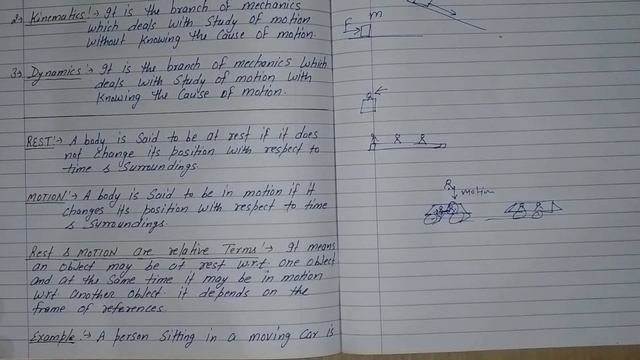 2. Kinematics :→ It is the branch of mechanics
which deals with study of motion
without knowing the cause of motion.
3. Dynamics :→ It is the branch of mechanics which
deals with study of motion with
knowing the cause of motion.
REST :→ A body is said to be at rest if it does
not change its position with respect to
time & surroundings.
MOTION :→ A body is said to be in motion if it
changes its position with respect to time
& surroundings.
Rest & MOTION are relative Terms :→ It means
an object may be at rest w.r.t. one object
and at the same time it may be in motion
w.r.t another object. it depends on the
frame of references.
Example :→ A person sitting in a moving car is
F
m
R
motion